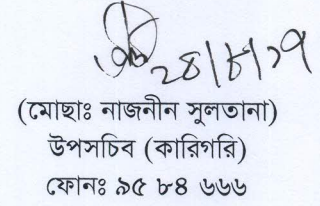 ২৪/৮/১৭
(মোছাঃ নাজনীন সুলতানা)
উপসচিব (কারিগরি)
ফোনঃ ৯৫ ৮৪ ৬৬৬